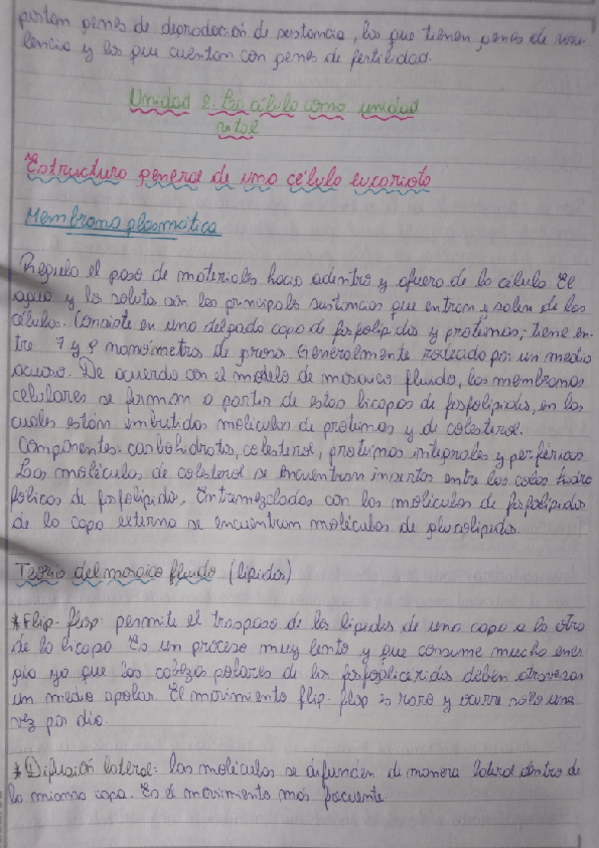 portan genes de degradación de sustancia, los que tienen genes de viru-
lencia y los que cuentan con genes de fertilidad.
Unidad 2: La célula como unidad
vital
Estructura general de una célula eucariota
Membrana plasmática
Regula el paso de materiales hacia adentro y afuera de la célula. El
agua y los solutos son las principales sustancias que entran y salen de las
células. Consiste en una delgada capa de fosfolípidos y proteínas; tiene en-
tre 7 y 9 nanómetros de grosor. Generalmente rodeado por un medio
acuoso. De acuerdo con el modelo de mosaico fluido, las membranas
celulares se forman a partir de estas bicapas de fosfolípidos, en las
cuales están embutidas moléculas de proteínas y de colesterol.
Componentes: carbohidratos, colesterol, proteínas integrales y periféricas
Las moléculas de colesterol se encuentran insertas entre las colas hidro
fóbicas de fosfolípidos. Entremezclados con las moléculas de fosfolípidos
de la capa externa se encuentran moléculas de glucolípidos.
Teoría del mosaico fluido (lípidos)
*Flip-flop permite el traspaso de los lípidos de una capa a la otra
de la bicapa. Es un proceso muy lento y que consume mucha ener
gía ya que las cabezas polares de los fosfoglicéridos deben atravesar
un medio apolar. El movimiento flip-flop es raro y ocurre sólo una
vez por día.
*Difusión lateral: las moléculas se difunden de manera lateral dentro de
la misma capa. Es el movimiento más frecuente.